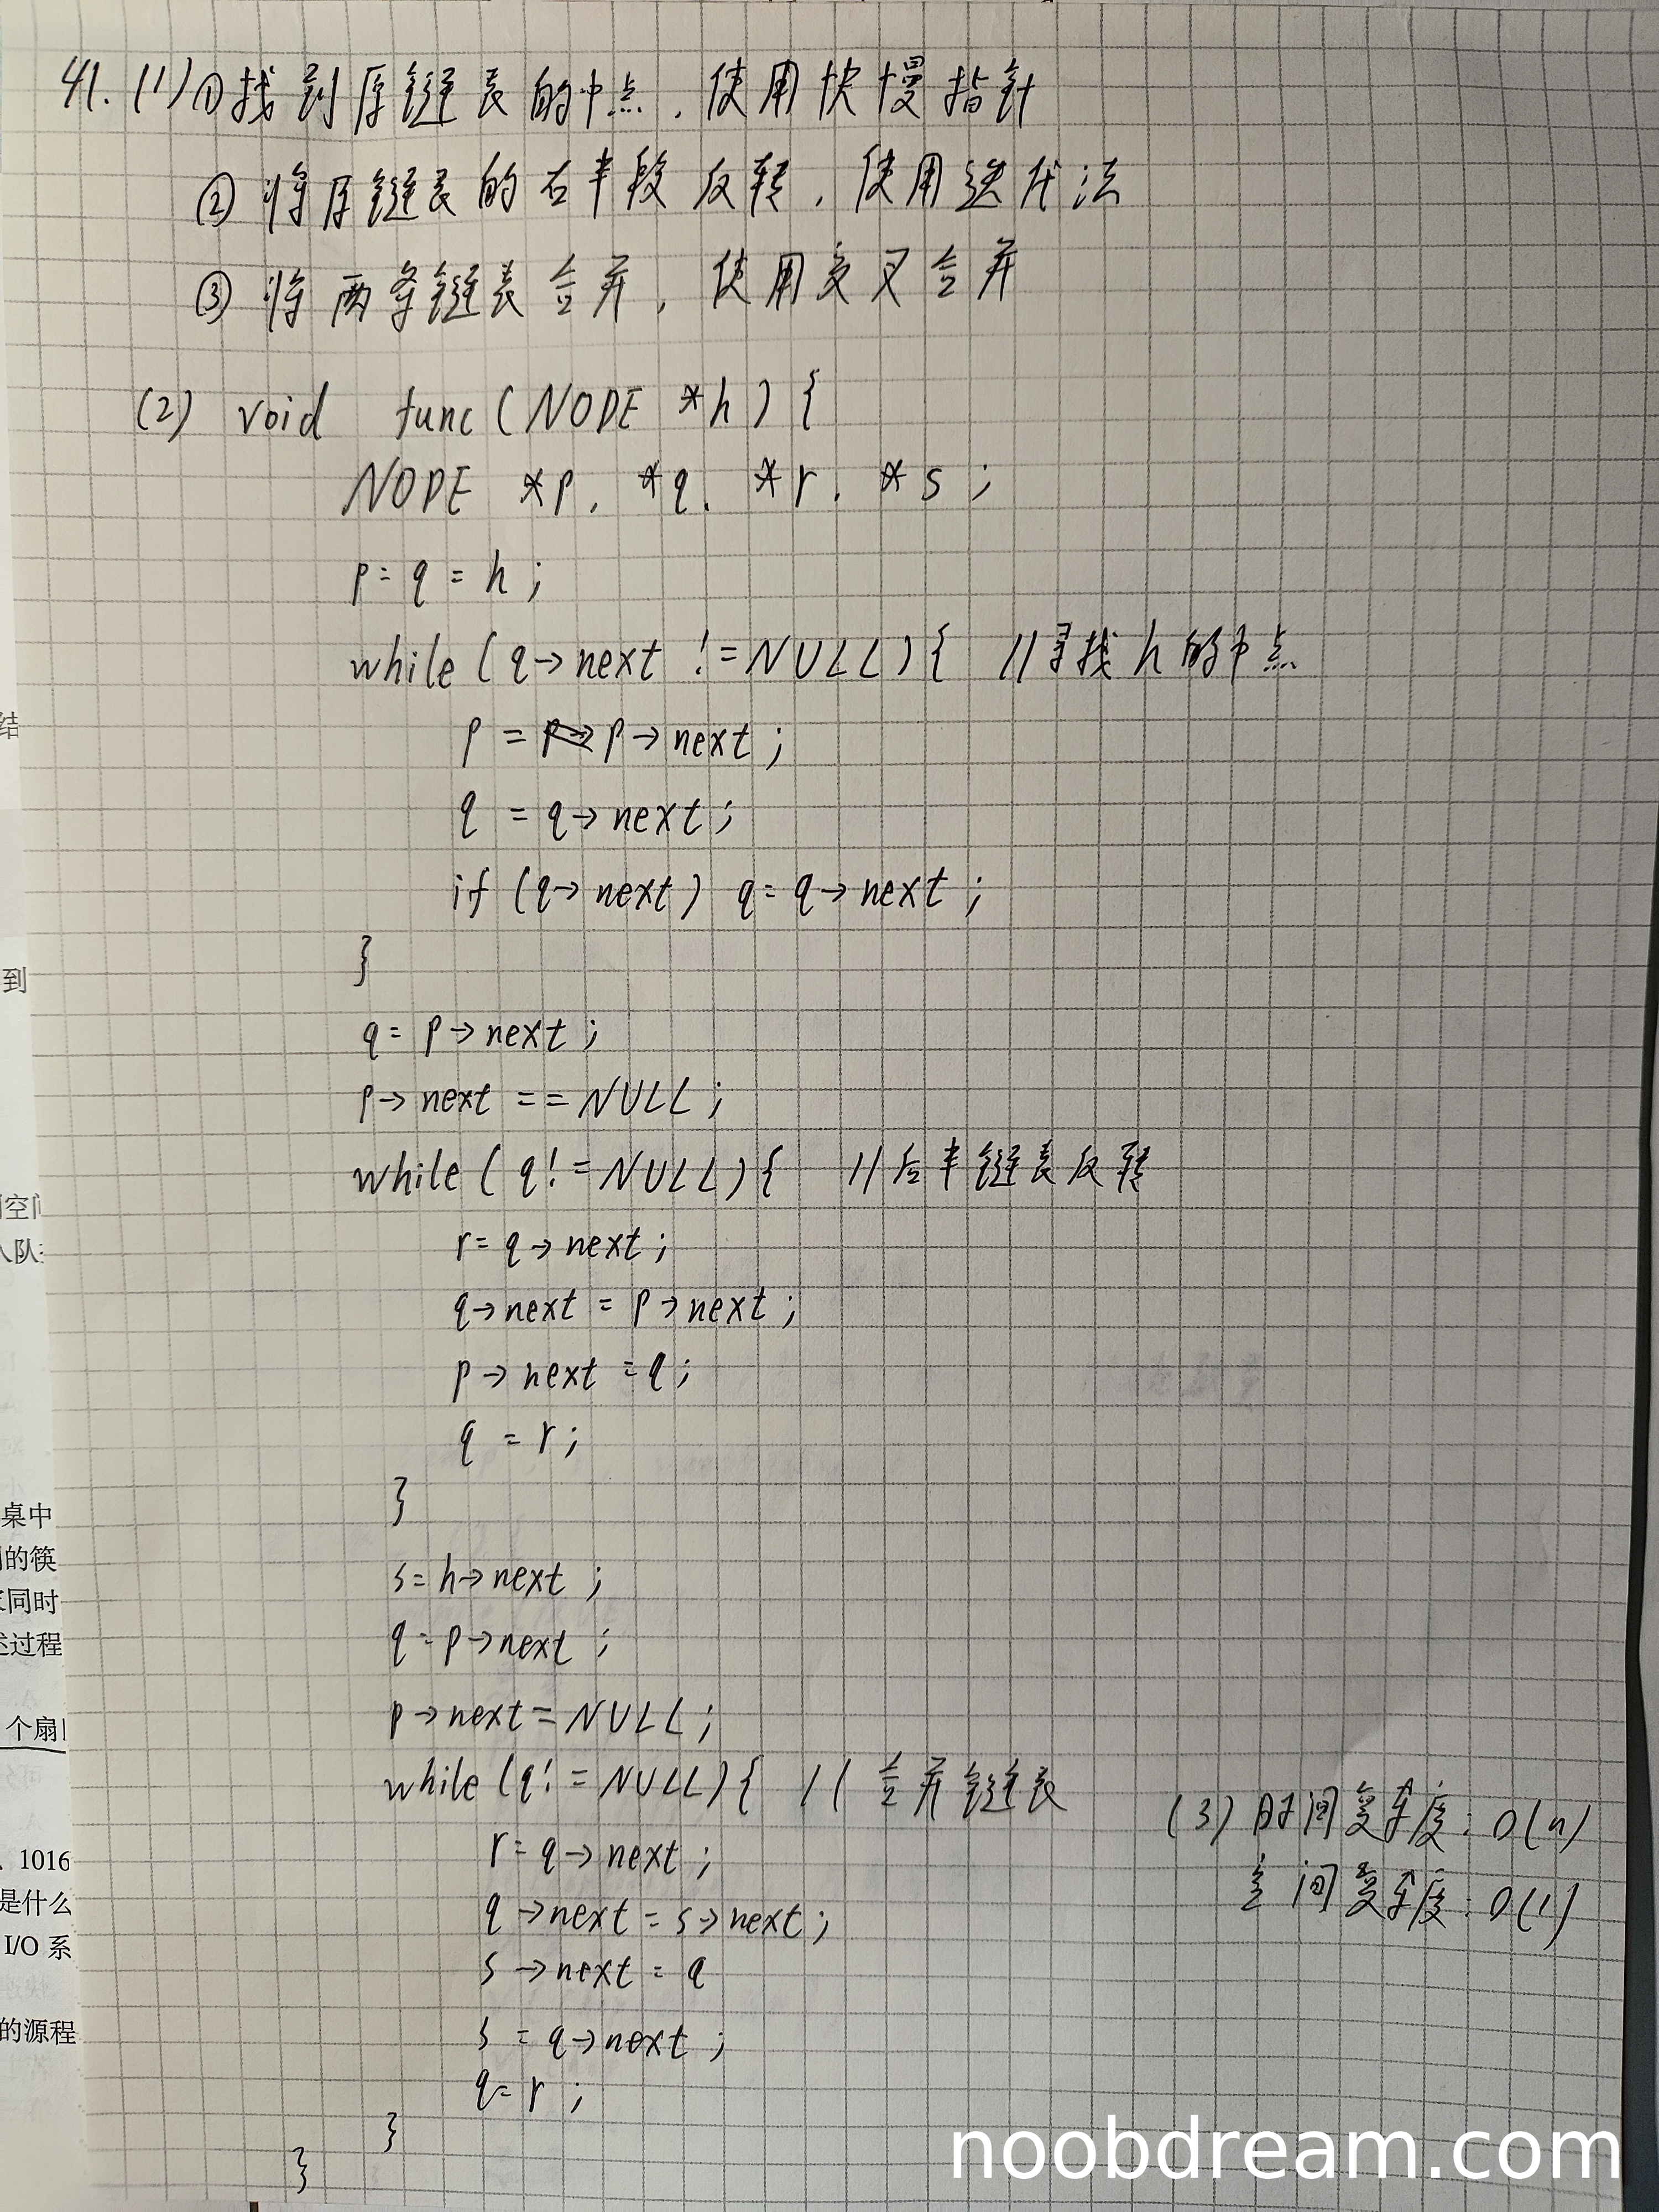 41. (1) ①找到原链表的中点，使用快慢指针
② 将原链表的右半段反转，使用迭代法
③ 将两条链表合并，使用交叉合并
(2) void func(NODE *h) {
NODE *p, *q, *r, *s ;
p = q = h ;
while (q→next != NULL) { //寻找h的中点
p = p→next ;
q = q→next ;
if (q→next) q = q→next ;
}
q = p→next ;
p→next == NULL ;
while (q != NULL) { //后半链表反转
r = q→next ;
q→next = p→next ;
p→next = q ;
q = r ;
}
s = h→next ;
q = p→next ;
p→next = NULL ;
while (q != NULL) { //合并链表
r = q→next ;
q→next = s→next ;
s→next = q
s = q→next ;
q = r ;
}
}
(3) 时间复杂度：O(n)
空间复杂度：O(1)
结
到
空间
入队
桌中
的筷
同时
过程
个扇
1016
是什么
I/O 系
的源程
noobdream.com